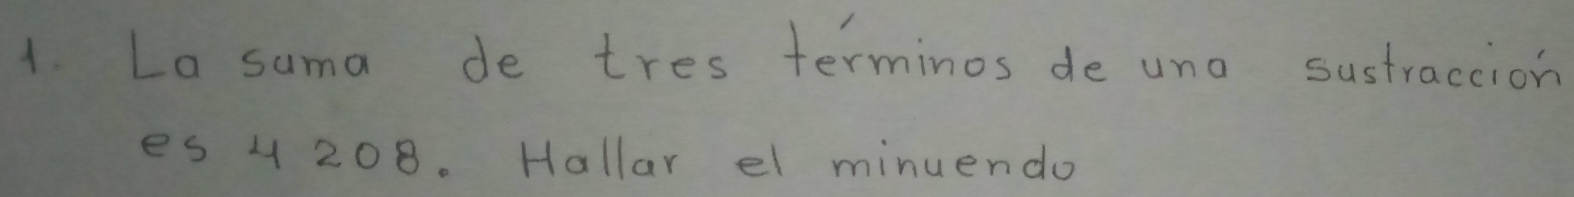 1. La suma de tres términos de una sustracción
es 4208. Hallar el minuendo